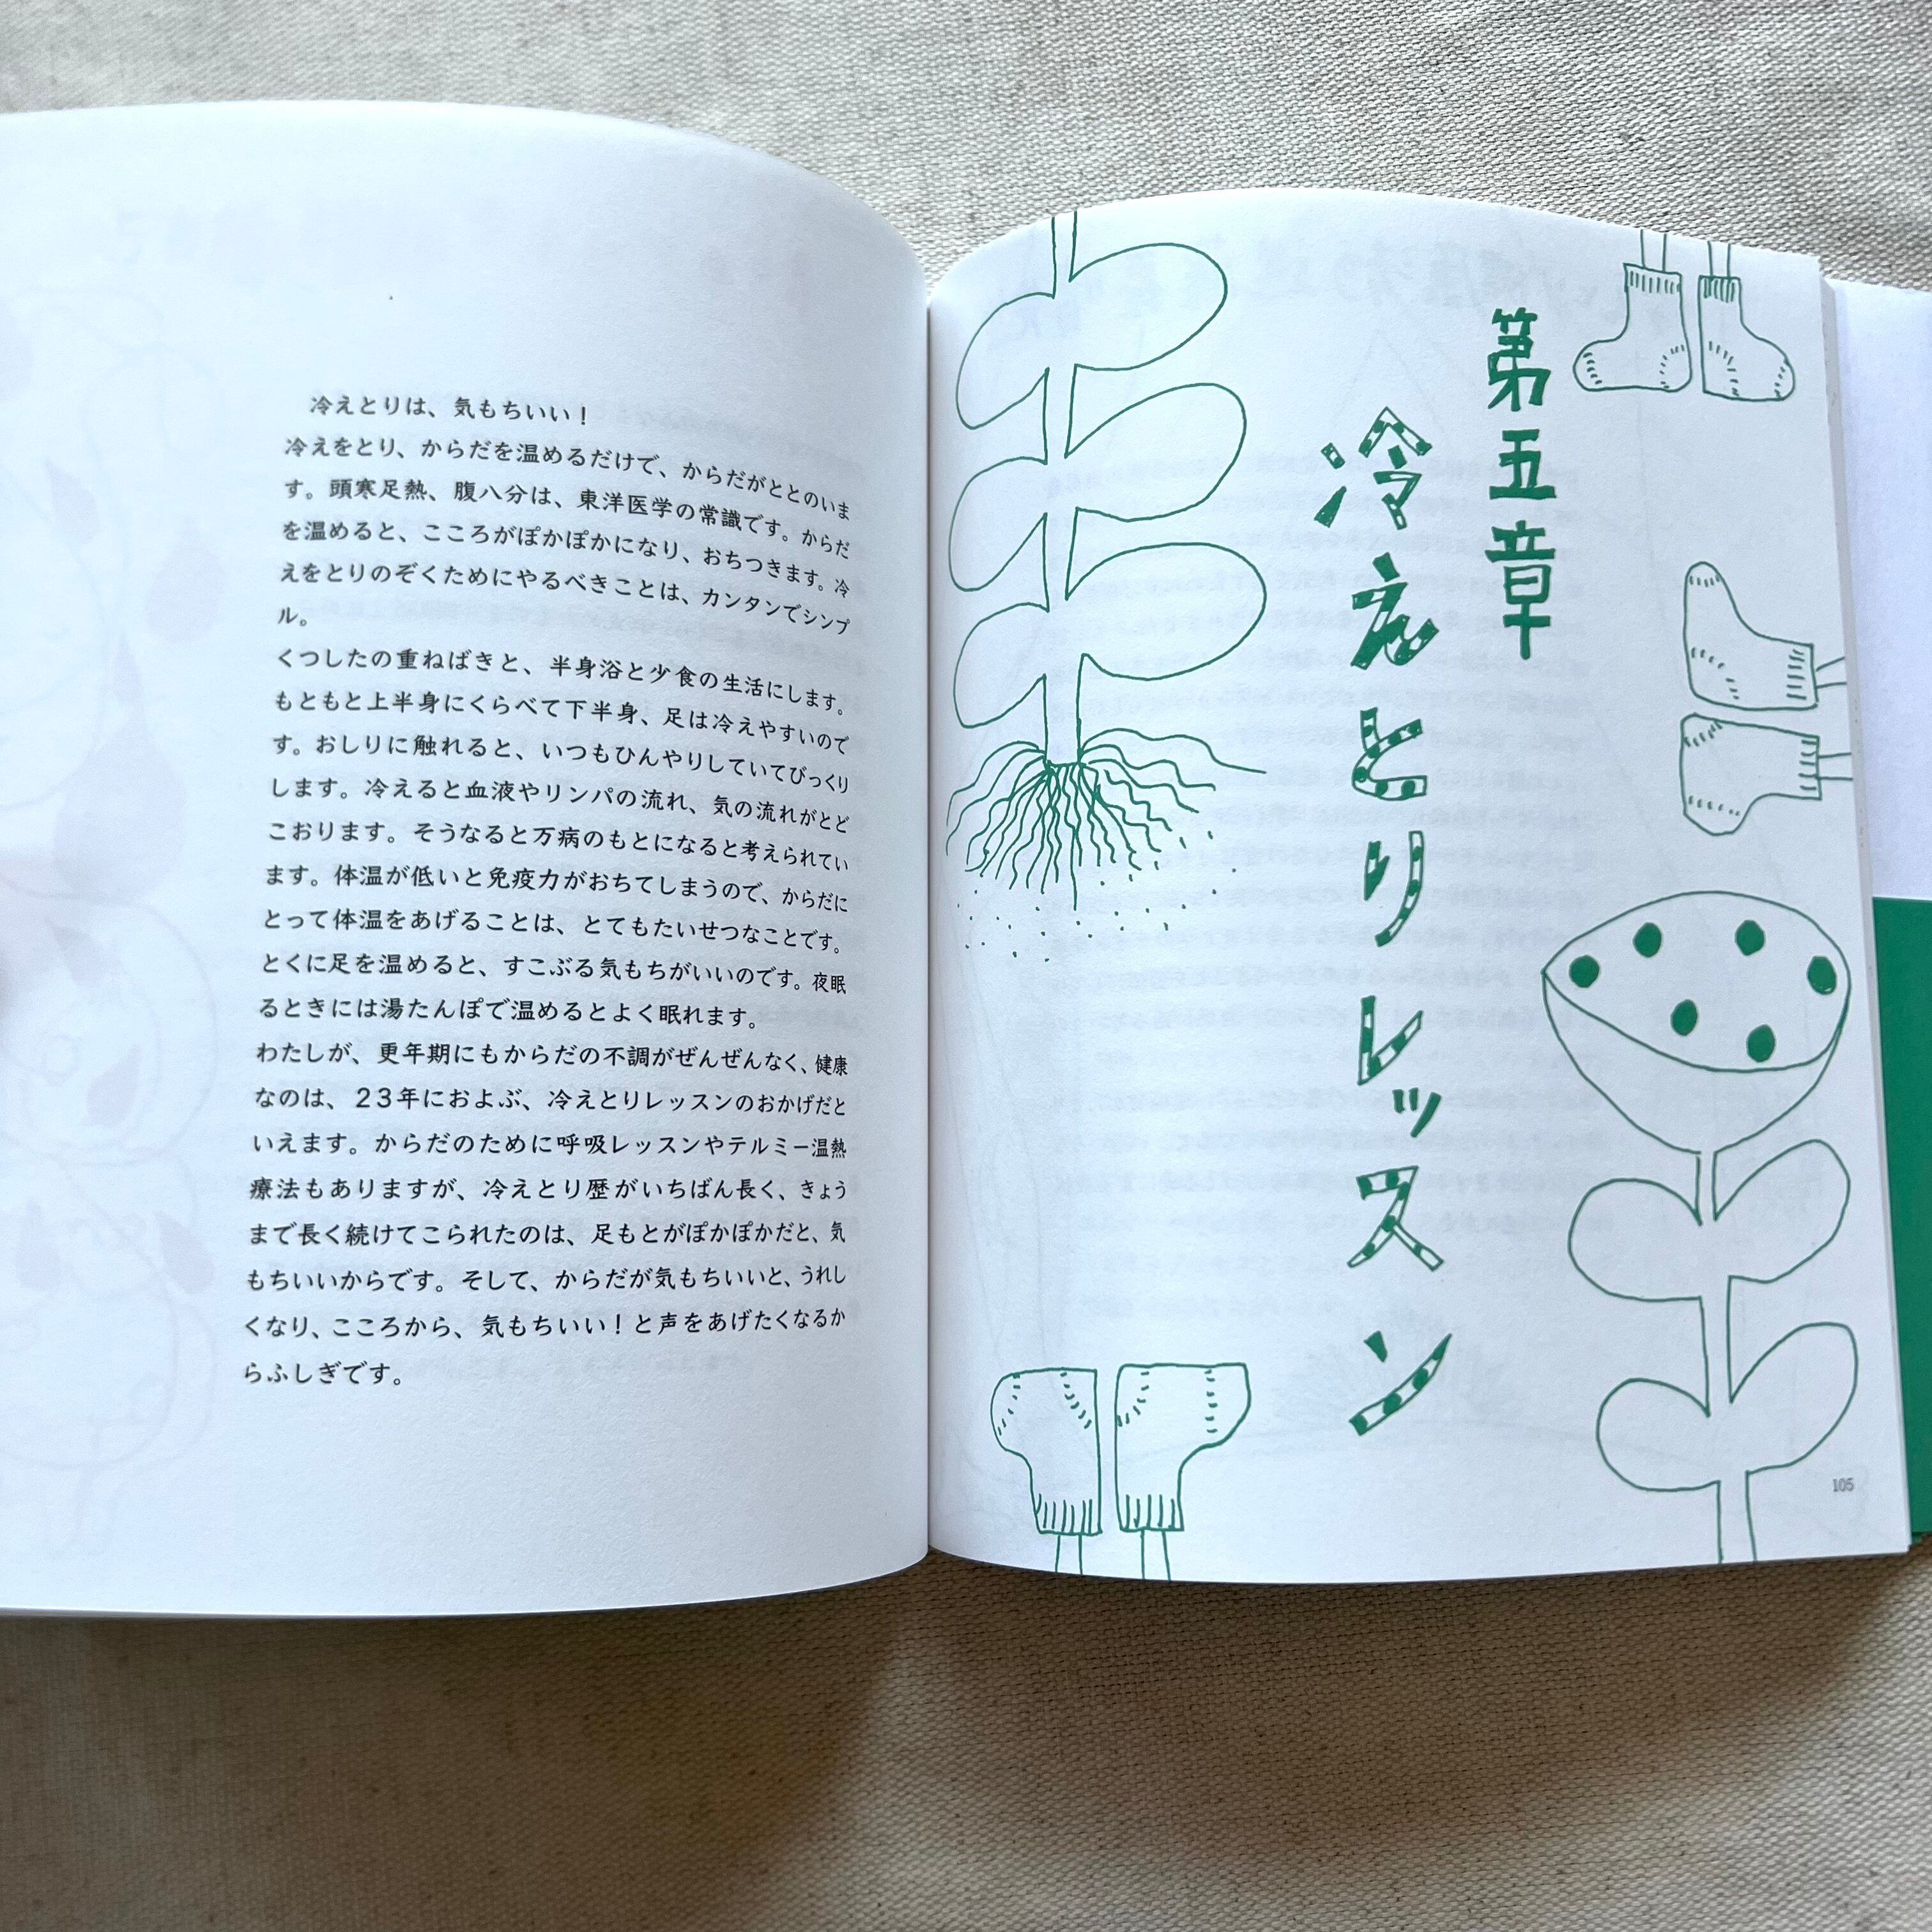 冷えとりは、気もちいい！
冷えをとり、からだを温めるだけで、からだがととのいま
す。頭寒足熱、腹八分は、東洋医学の常識です。からだ
を温めると、こころがぽかぽかになり、おちつきます。冷
えをとりのぞくためにやるべきことは、カンタンでシンプ
ル。
くつしたの重ねばきと、半身浴と少食の生活にします。
もともと上半身にくらべて下半身、足は冷えやすいので
す。おしりに触れると、いつもひんやりしていてびっくり
します。冷えると血液やリンパの流れ、気の流れがとど
こおります。そうなると万病のもとになると考えられてい
ます。体温が低いと免疫力がおちてしまうので、からだに
とって体温をあげることは、とてもたいせつなことです。
とくに足を温めると、すこぶる気もちがいいのです。夜眠
るときには湯たんぽで温めるとよく眠れます。
わたしが、更年期にもからだの不調がぜんぜんなく、健康
なのは、23年におよぶ、冷えとりレッスンのおかげだと
いえます。からだのために呼吸レッスンやテルミー温熱
療法もありますが、冷えとり歴がいちばん長く、きょう
まで長く続けてこられたのは、足もとがぽかぽかだと、気
もちいいからです。そして、からだが気もちいいと、うれし
くなり、こころから、気もちいい！と声をあげたくなるか
らふしぎです。
第五章
冷えとりレッスン
105